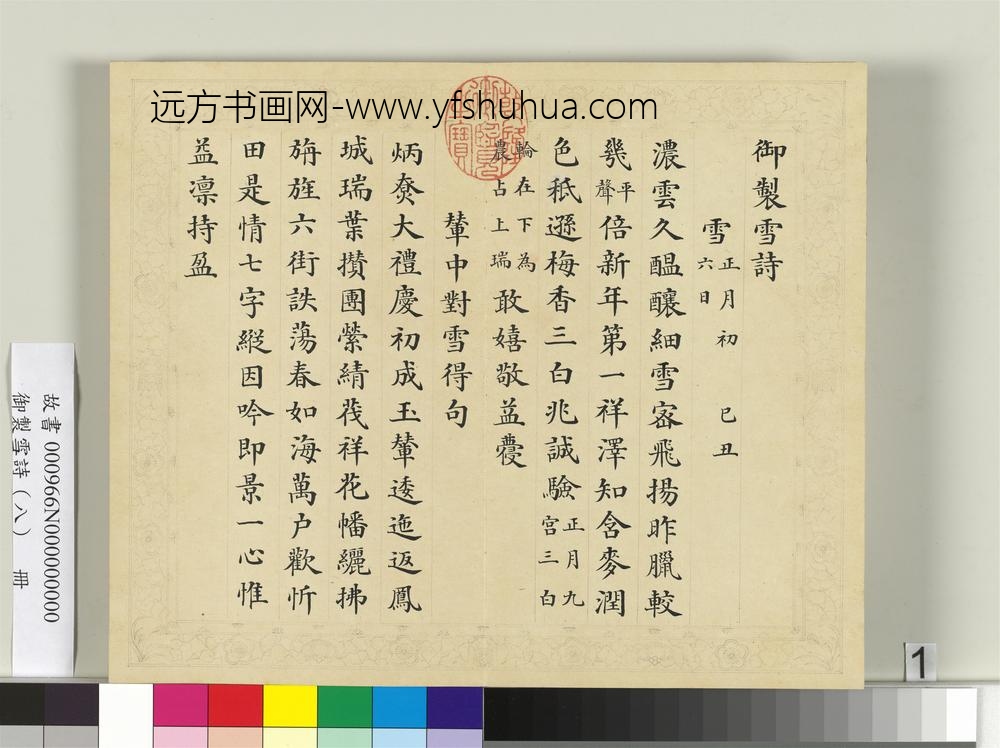 远方书画网-www.yfshuhua.com
乾隆御覽之寶
御製雪詩
雪 正月初六日 己丑
濃雲久醖釀細雪宻飛揚昨臘較
幾平聲倍新年第一祥澤知含麥潤
色秪遜梅香三白兆誠驗正月九宫三白
輪在下為農占上瑞敢嬉敬益
輦中對雪得句
炳尞大禮慶初成玉輦逶迤返鳳
城瑞葉攢團縈綪茷祥花幡纚拂
旃旌六街詄蕩春如海萬户歡忻
田是情七字縱因吟即景一心惟
益凛持盈
故書 000966N000000000
御製雪詩（八） 冊
1